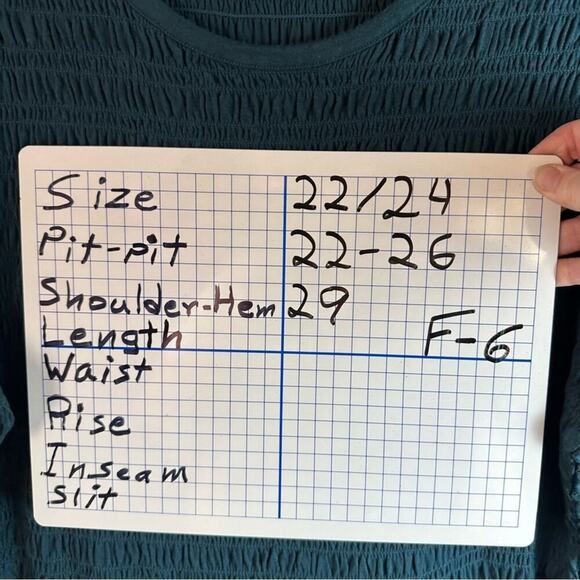 Size 22/24
Pit-pit 22-26
Shoulder-Hem 29
Length
F-6
Waist
Rise
Inseam
Slit